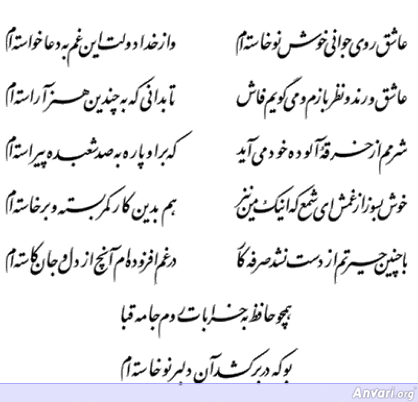 عاشق روی جوانی خوش نوخاسته‌ام و از خدا دولت این غم به دعا خواسته‌ام
عاشق و رند و نظربازم و می‌گویم فاش تا بدانی که به چندین هنر آراسته‌ام
شرمم از خرقهٔ آلوده خود می‌آید که بر او پاره به صد شعبده پیراسته‌ام
خوش بسوز از غمش ای شمع که اینک من نیز هم بدین کار کمربسته و برخاسته‌ام
با چنین حیرتم از دست بشد صرفه کار در غم افزوده‌ام آنچ از دل و جان کاسته‌ام
همچو حافظ به خرابات روم جامه قبا
بو که در بر کشد آن دلبر نوخاسته‌ام
Anvari.org